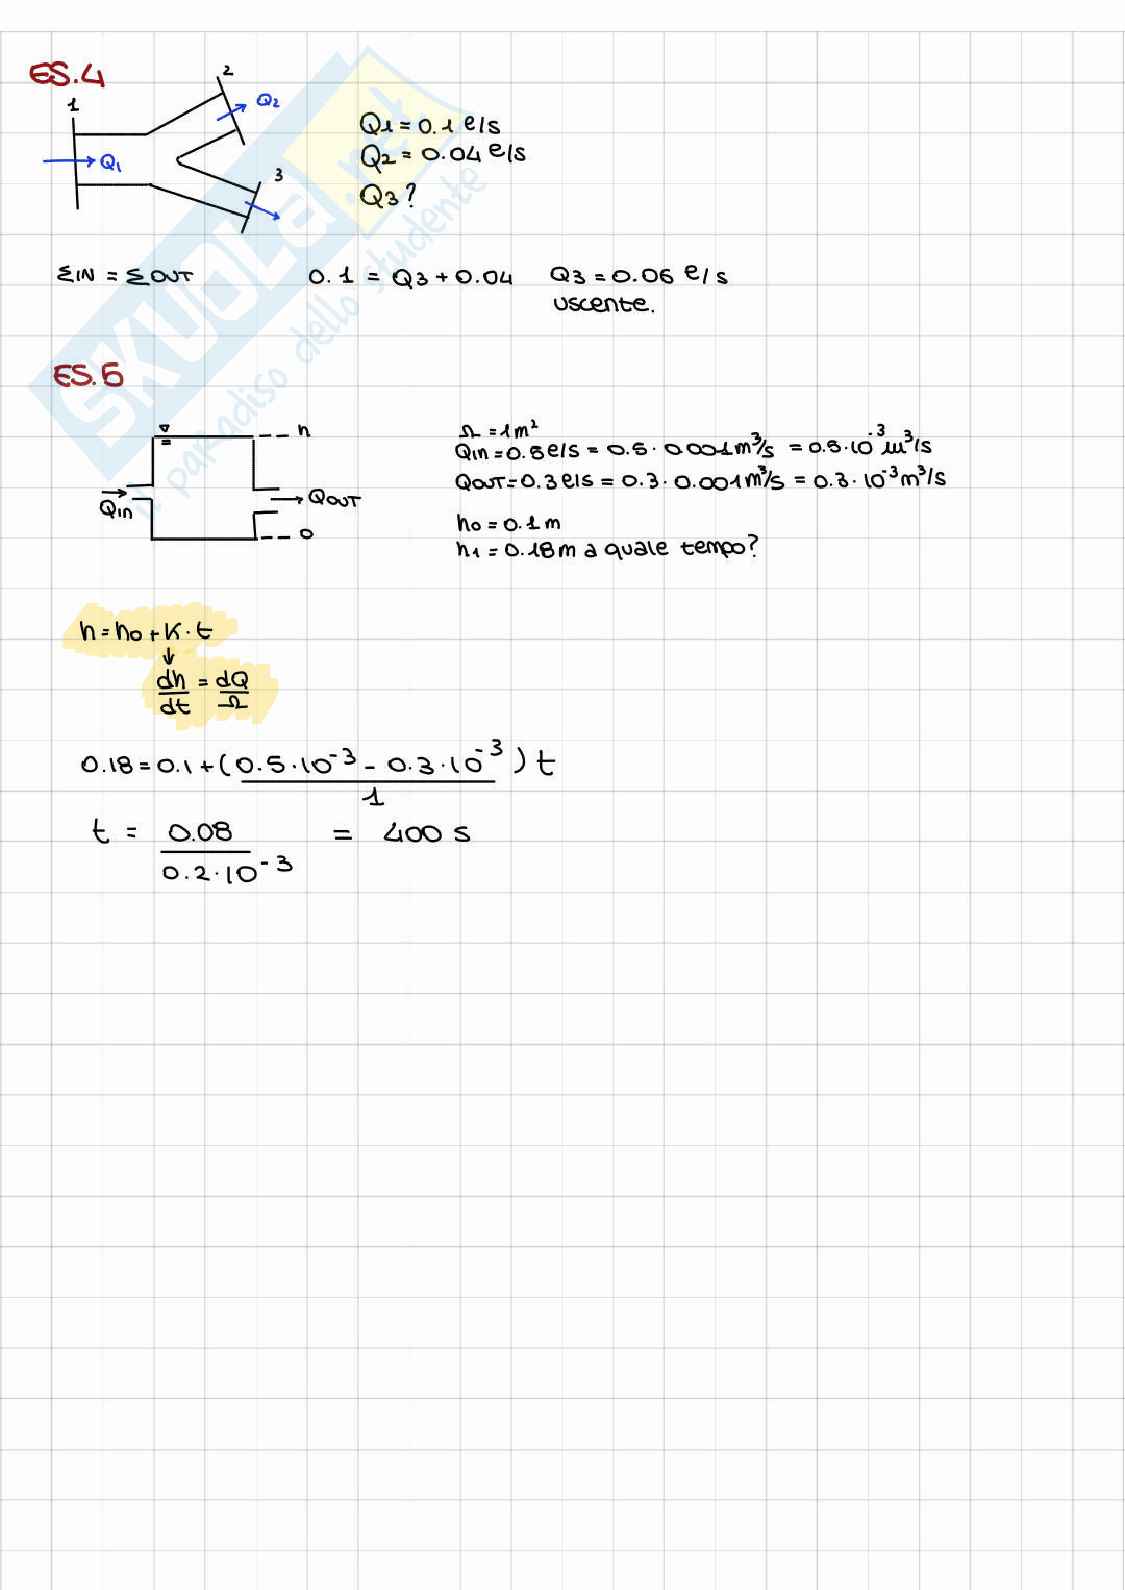 ES.4
1
2
3
Q1
Q2
Q1 = 0.1 e/s
Q2 = 0.04 e/s
Q3 ?
ΣIN = ΣOUT 0.1 = Q3 + 0.04 Q3 = 0.06 e/s
uscente.
SKUOLA.net
il paradiso dello studente
ES.5
h
Qin
QOUT
0
Ω = 1m²
Qin = 0.5 e/s = 0.5 · 0.001 m³/s = 0.5 · 10⁻³ m³/s
QOUT = 0.3 e/s = 0.3 · 0.001 m³/s = 0.3 · 10⁻³ m³/s
h0 = 0.1 m
h1 = 0.18 m a quale tempo?
h = h0 + K · t
↓
dh/dt = dQ/Ω
0.18 = 0.1 + (0.5 · 10⁻³ - 0.3 · 10⁻³ / 1) t
t = 0.08 / 0.2 · 10⁻³ = 400 s